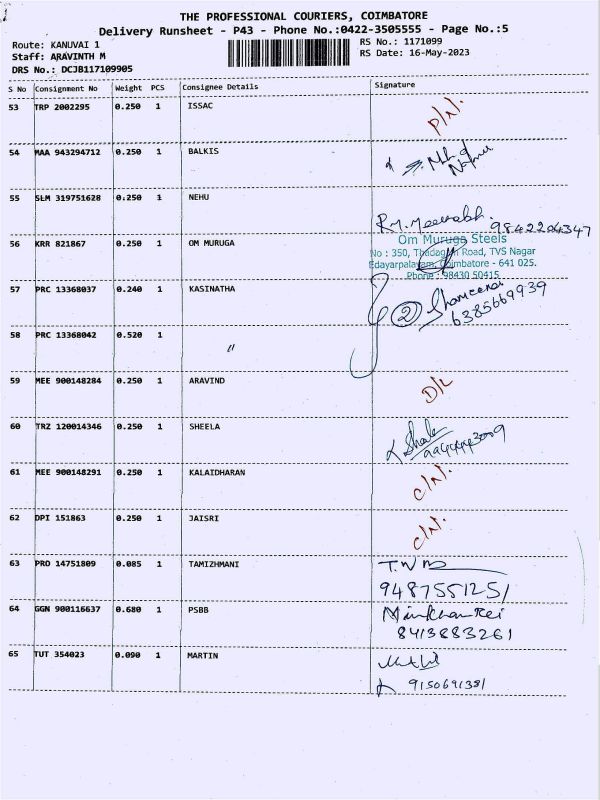 THE PROFESSIONAL COURIERS, COIMBATORE
Delivery Runsheet - P43 - Phone No.:0422-3505555 - Page No.:5
Route: KANUVAI 1 RS No.: 1171099
Staff: ARAVINTH M RS Date: 16-May-2023
DRS No.: DCJB117109905
S No Consignment No Weight PCS Consignee Details Signature
53 TRP 2002295 0.250 1 ISSAC P/N.
54 MAA 943294712 0.250 1 BALKIS
55 SLM 319751628 0.250 1 NEHU
R.M. 9842204347
56 KRR 821867 0.250 1 OM MURUGA Om Muruga Steels
No : 350, Thadagam Road, TVS Nagar
Edayarpalayam, Coimbatore - 641 025.
Phone : 98430 50415
57 PRC 13368037 0.240 1 KASINATHA 2
6385669939
58 PRC 13368042 0.520 1 "
59 MEE 900148284 0.250 1 ARAVIND D/L
60 TRZ 120014346 0.250 1 SHEELA
61 MEE 900148291 0.250 1 KALAIDHARAN C/N.
62 DPI 151863 0.250 1 JAISRI C/N.
63 PRO 14751809 0.085 1 TAMIZHMANI
9487551251
64 GGN 900116637 0.680 1 PSBB
8413883261
65 TUT 354023 0.090 1 MARTIN
9150691381